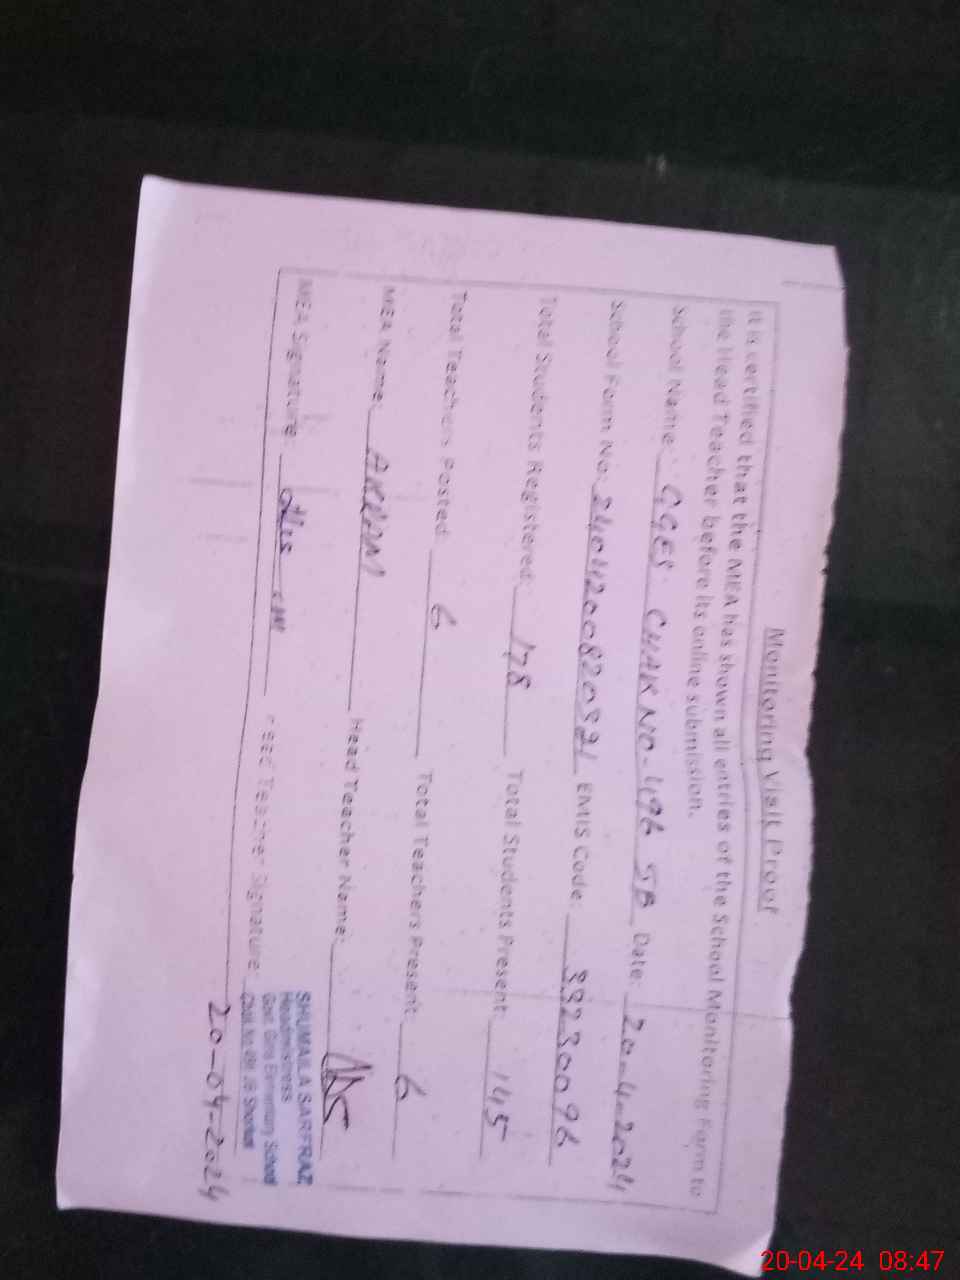 Monitoring Visit Proof
It is certified that the MEA has shown all entries of the School Monitoring Form to
the Head Teacher before its online submission.
School Name: GGES CHAK NO-496 JB Date: 20-4-2024
School Form No: 2404200820321 EMIS Code: 33230096
Total Students Registered: 178 Total Students Present 145
Total Teachers Posted: 6 Total Teachers Present 6
MEA Name: AKRAM Head Teacher Name:
MEA Signature: Head Teacher Signature:
SHUMAILA SARFRAZ,
Headmistress
Govt. Girls Elementary School
20-04-2024
20-04-24 08:47